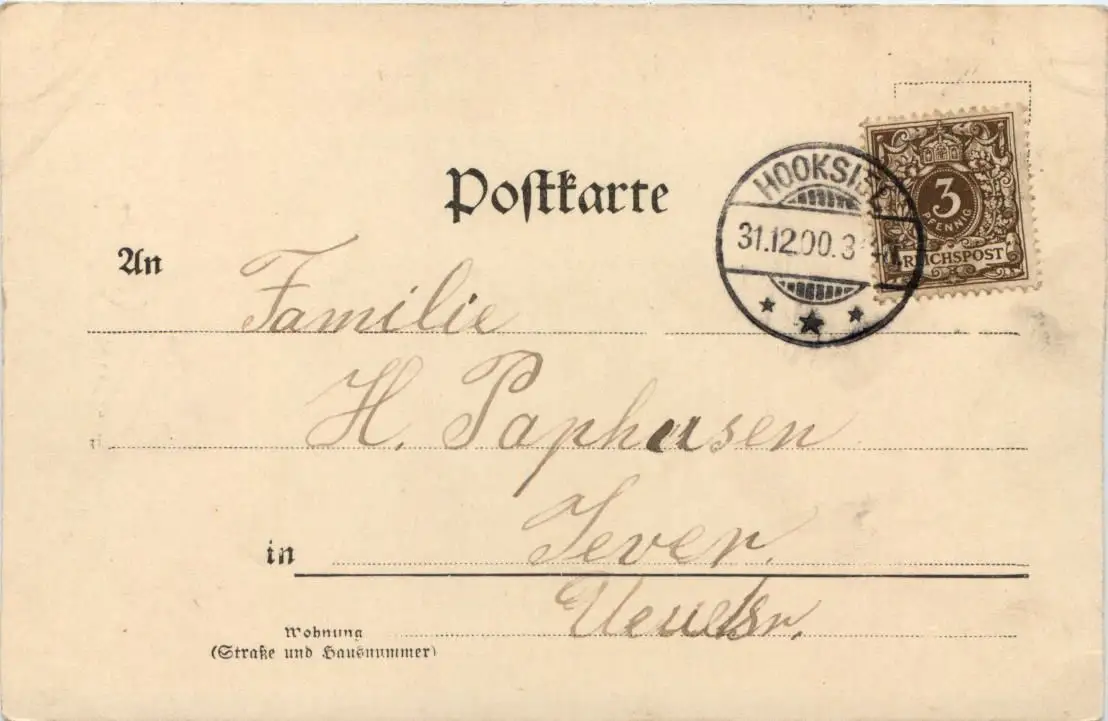 Postkarte
HOOKSIEL
31.12.00.3
3
PFENNIG
REICHSPOST
An
Familie
H. Paphusen
in
Jever.
Wohnung
(Straße und Hausnummer)